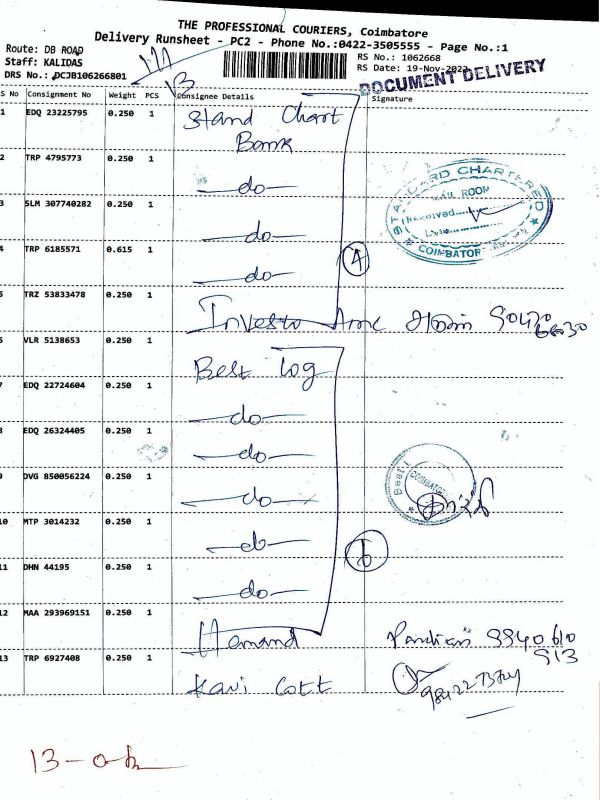 THE PROFESSIONAL COURIERS, Coimbatore
Delivery Runsheet - PC2 - Phone No.:0422-3505555 - Page No.:1
Route: DB ROAD
Staff: KALIDAS
DRS No.: PCJB106266801
RS No.: 1062668
RS Date: 19-Nov-2022
DOCUMENT DELIVERY
13
S No Consignment No Weight PCS Consignee Details Signature
1 EDQ 23225795 0.250 1 Stand Chart Bank
2 TRP 4795773 0.250 1 -do-
STANDARD CHARTERED
MAIL ROOM
Received
Date
COIMBATORE
3 SLM 307740282 0.250 1 -do-
4 TRP 6185571 0.615 1 -do-
4
5 TRZ 53833478 0.250 1 Investo Amc
6 VLR 5138653 0.250 1 Best Log
7 EDQ 22724604 0.250 1 -do-
8 EDQ 26324405 0.250 1 -do-
9 DVG 850056224 0.250 1 -do-
Best
COIMBATORE
10 MTP 3014232 0.250 1 -do-
6
11 DHN 44195 0.250 1 -do-
12 MAA 293969151 0.250 1 Hemand 9840 610 913
13 TRP 6927408 0.250 1 Kavi Cott
13-